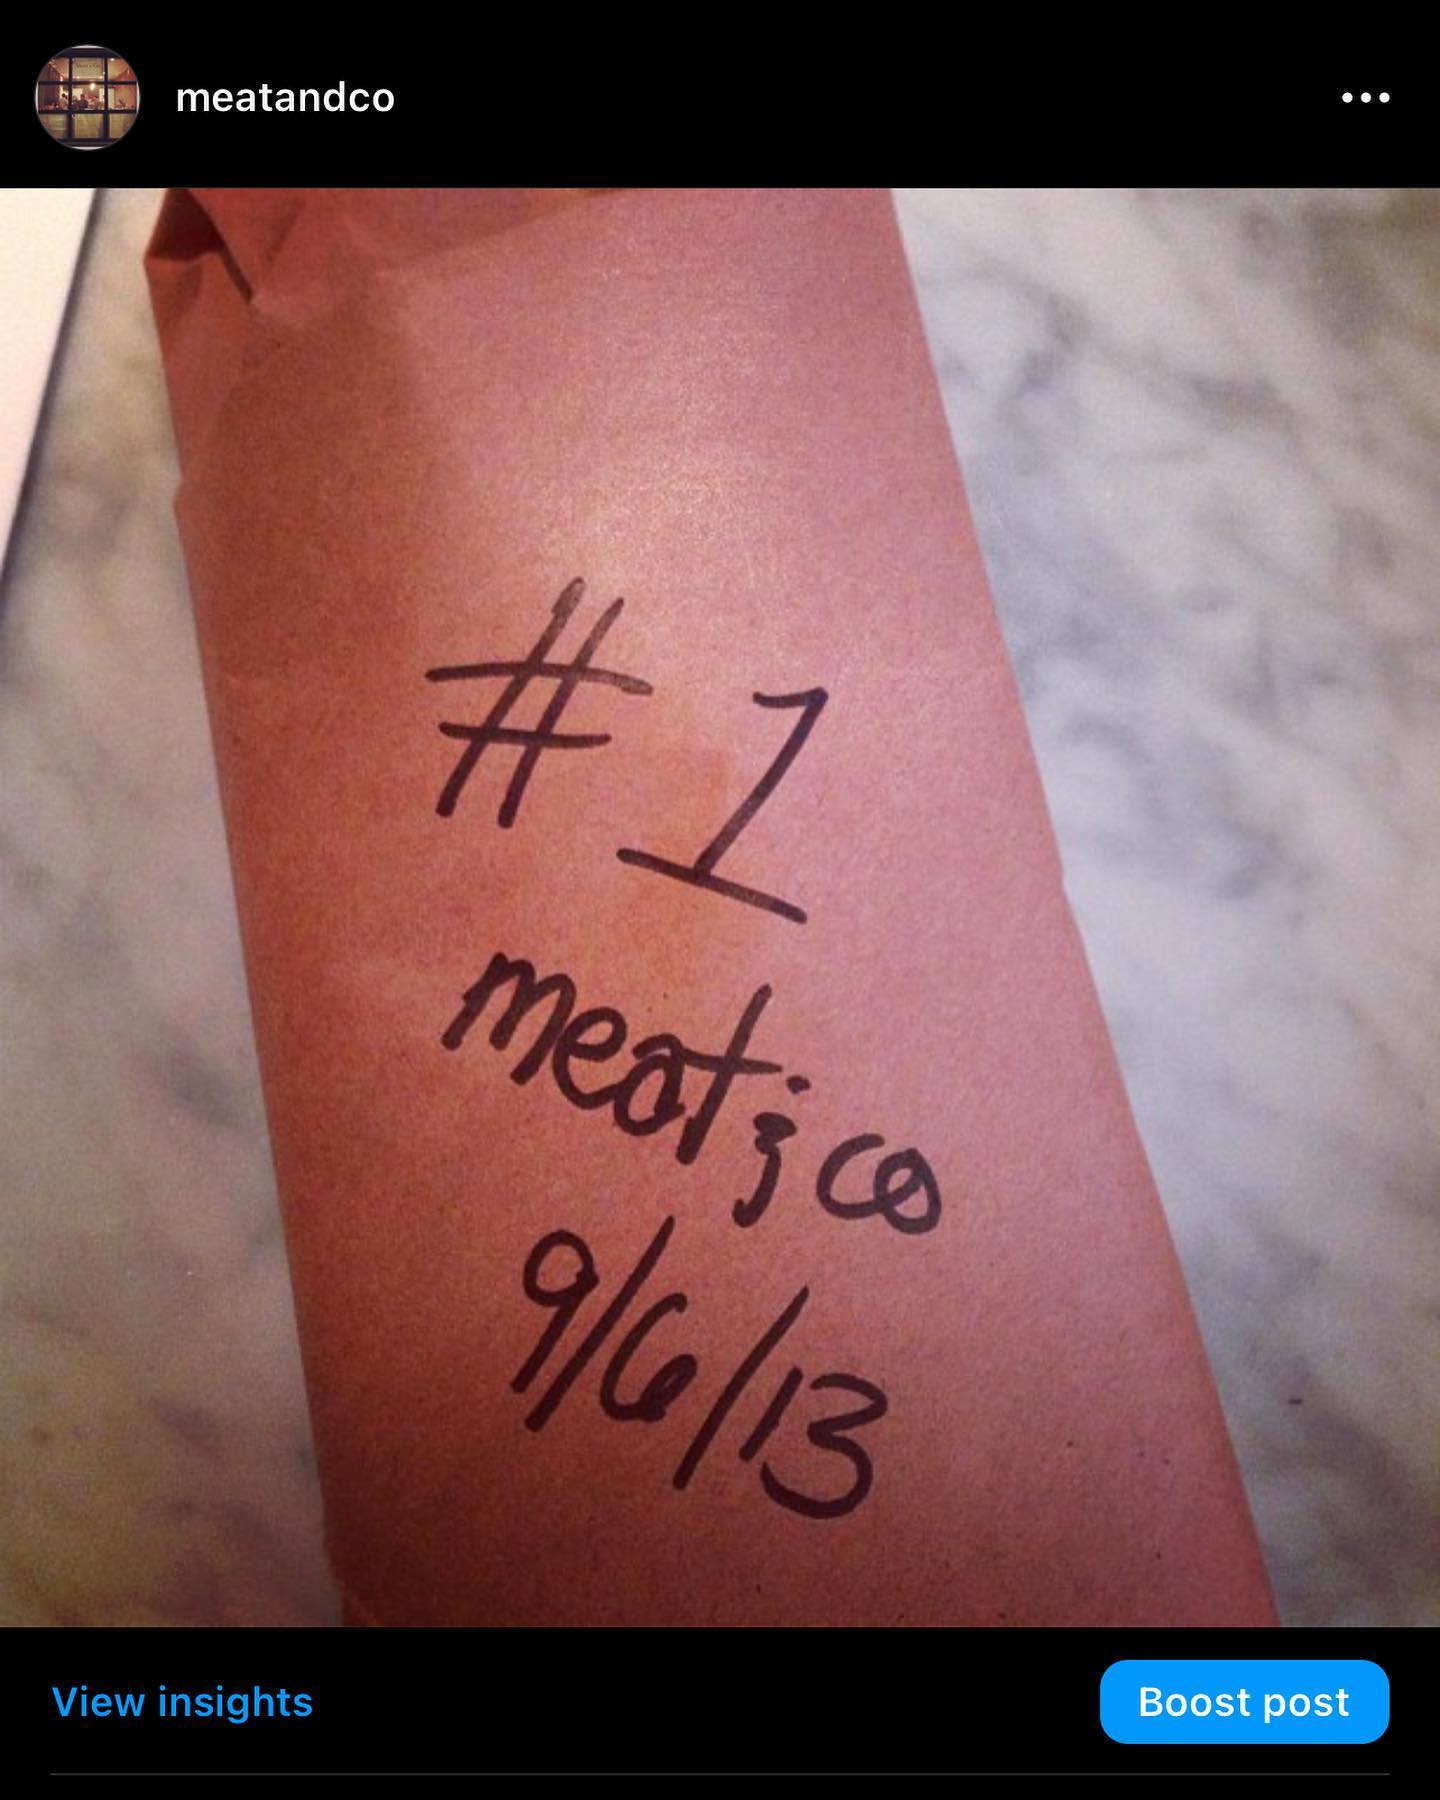 meatandco
#1
meat & co
9/6/13
View insights
Boost post